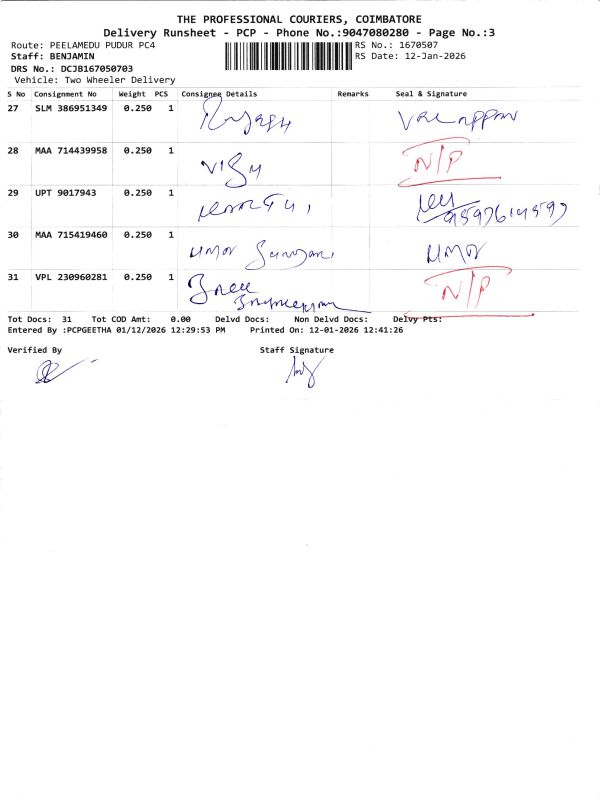 THE PROFESSIONAL COURIERS, COIMBATORE
Delivery Runsheet - PCP - Phone No.:9047080280 - Page No.:3
Route: PEELAMEDU PUDUR PC4 RS No.: 1670507
Staff: BENJAMIN RS Date: 12-Jan-2026
DRS No.: DCJB167050703
Vehicle: Two Wheeler Delivery
S No Consignment No Weight PCS Consignee Details Remarks Seal & Signature
27 SLM 386951349 0.250 1
28 MAA 714439958 0.250 1 N/P
29 UPT 9017943 0.250 1
30 MAA 715419460 0.250 1 umar umar
31 VPL 230960281 0.250 1 N/P
Tot Docs: 31 Tot COD Amt: 0.00 Delvd Docs: Non Delvd Docs: Delvy Pts:
Entered By :PCPGEETHA 01/12/2026 12:29:53 PM Printed On: 12-01-2026 12:41:26
Verified By Staff Signature